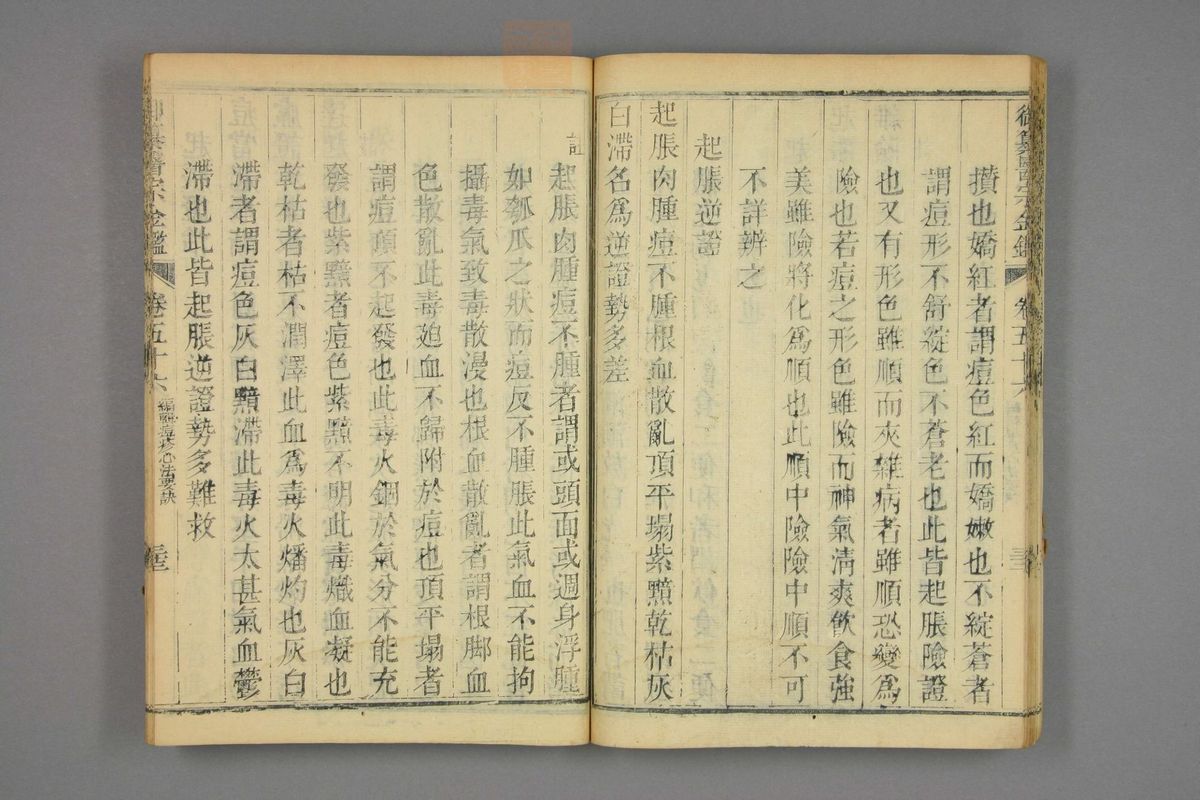 御纂醫宗金鑑 卷五十六
攢也嬌紅者謂痘色紅而嬌嫩也不綻蒼者
謂痘形不舒綻色不蒼老也此皆起脹險證
也又有形色雖順而夾雜病者雖順恐變為
險也若痘之形色雖險而神氣清爽飲食強
美雖險將化為順也此順中險險中順不可
不詳辨之
起脹逆證
起脹肉腫痘不腫根血散亂頂平塌紫黯乾枯灰
白滯名為逆證勢多差
註
起脹肉腫痘不腫者謂或頭面或週身浮腫
如瓠瓜之狀而痘反不腫脹此氣血不能拘
攝毒氣致毒散漫也根血散亂者謂根脚血
色散亂此毒廹血不歸附於痘也頂平塌者
謂痘頂不起發也此毒火錮於氣分不能充
發也紫黯者痘色紫黯不明此毒熾血凝也
乾枯者枯不潤澤此血為毒火燔灼也灰白
滯者謂痘色灰白黯滯此毒火太甚氣血鬱
滯也此皆起脹逆證勢多難救
御纂醫宗金鑑 卷五十六 編輯痘疹心法要訣